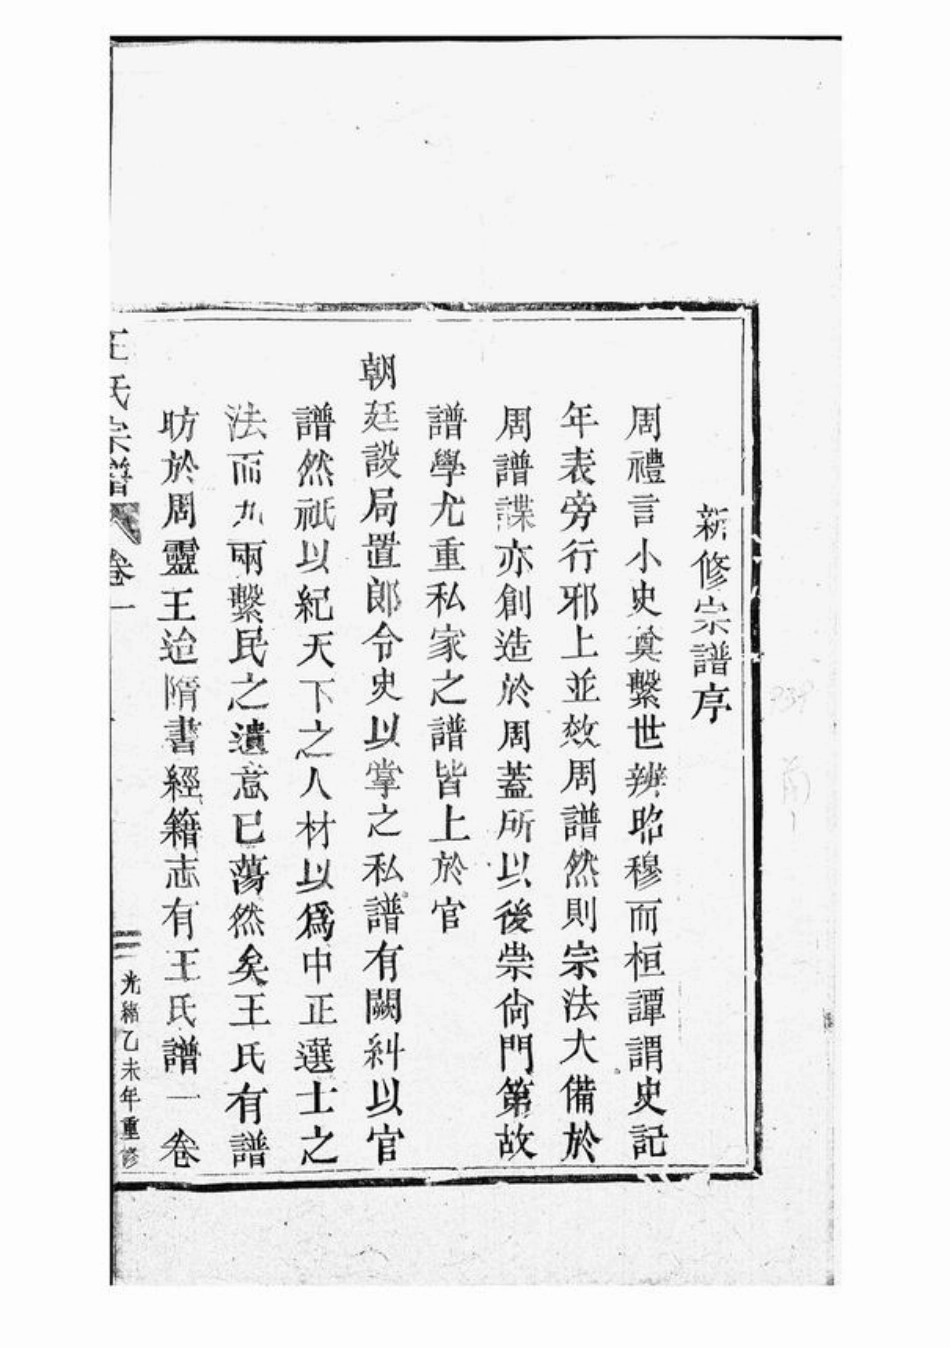 新修宗譜序
周禮言小史奠繫世辨昭穆而桓譚謂史記
年表旁行邪上並效周譜然則宗法大備於
周譜諜亦創造於周蓋所以後崇尙門第故
譜學尤重私家之譜皆上於官
朝廷設局置郞令史以掌之私譜有闕糾以官
譜然祇以紀天下之人材以爲中正選士之
法而九兩繫民之遺意已蕩然矣王氏有譜
昉於周靈王迨隋書經籍志有王氏譜一卷
王氏宗譜
卷一
一
光緒乙未年重修